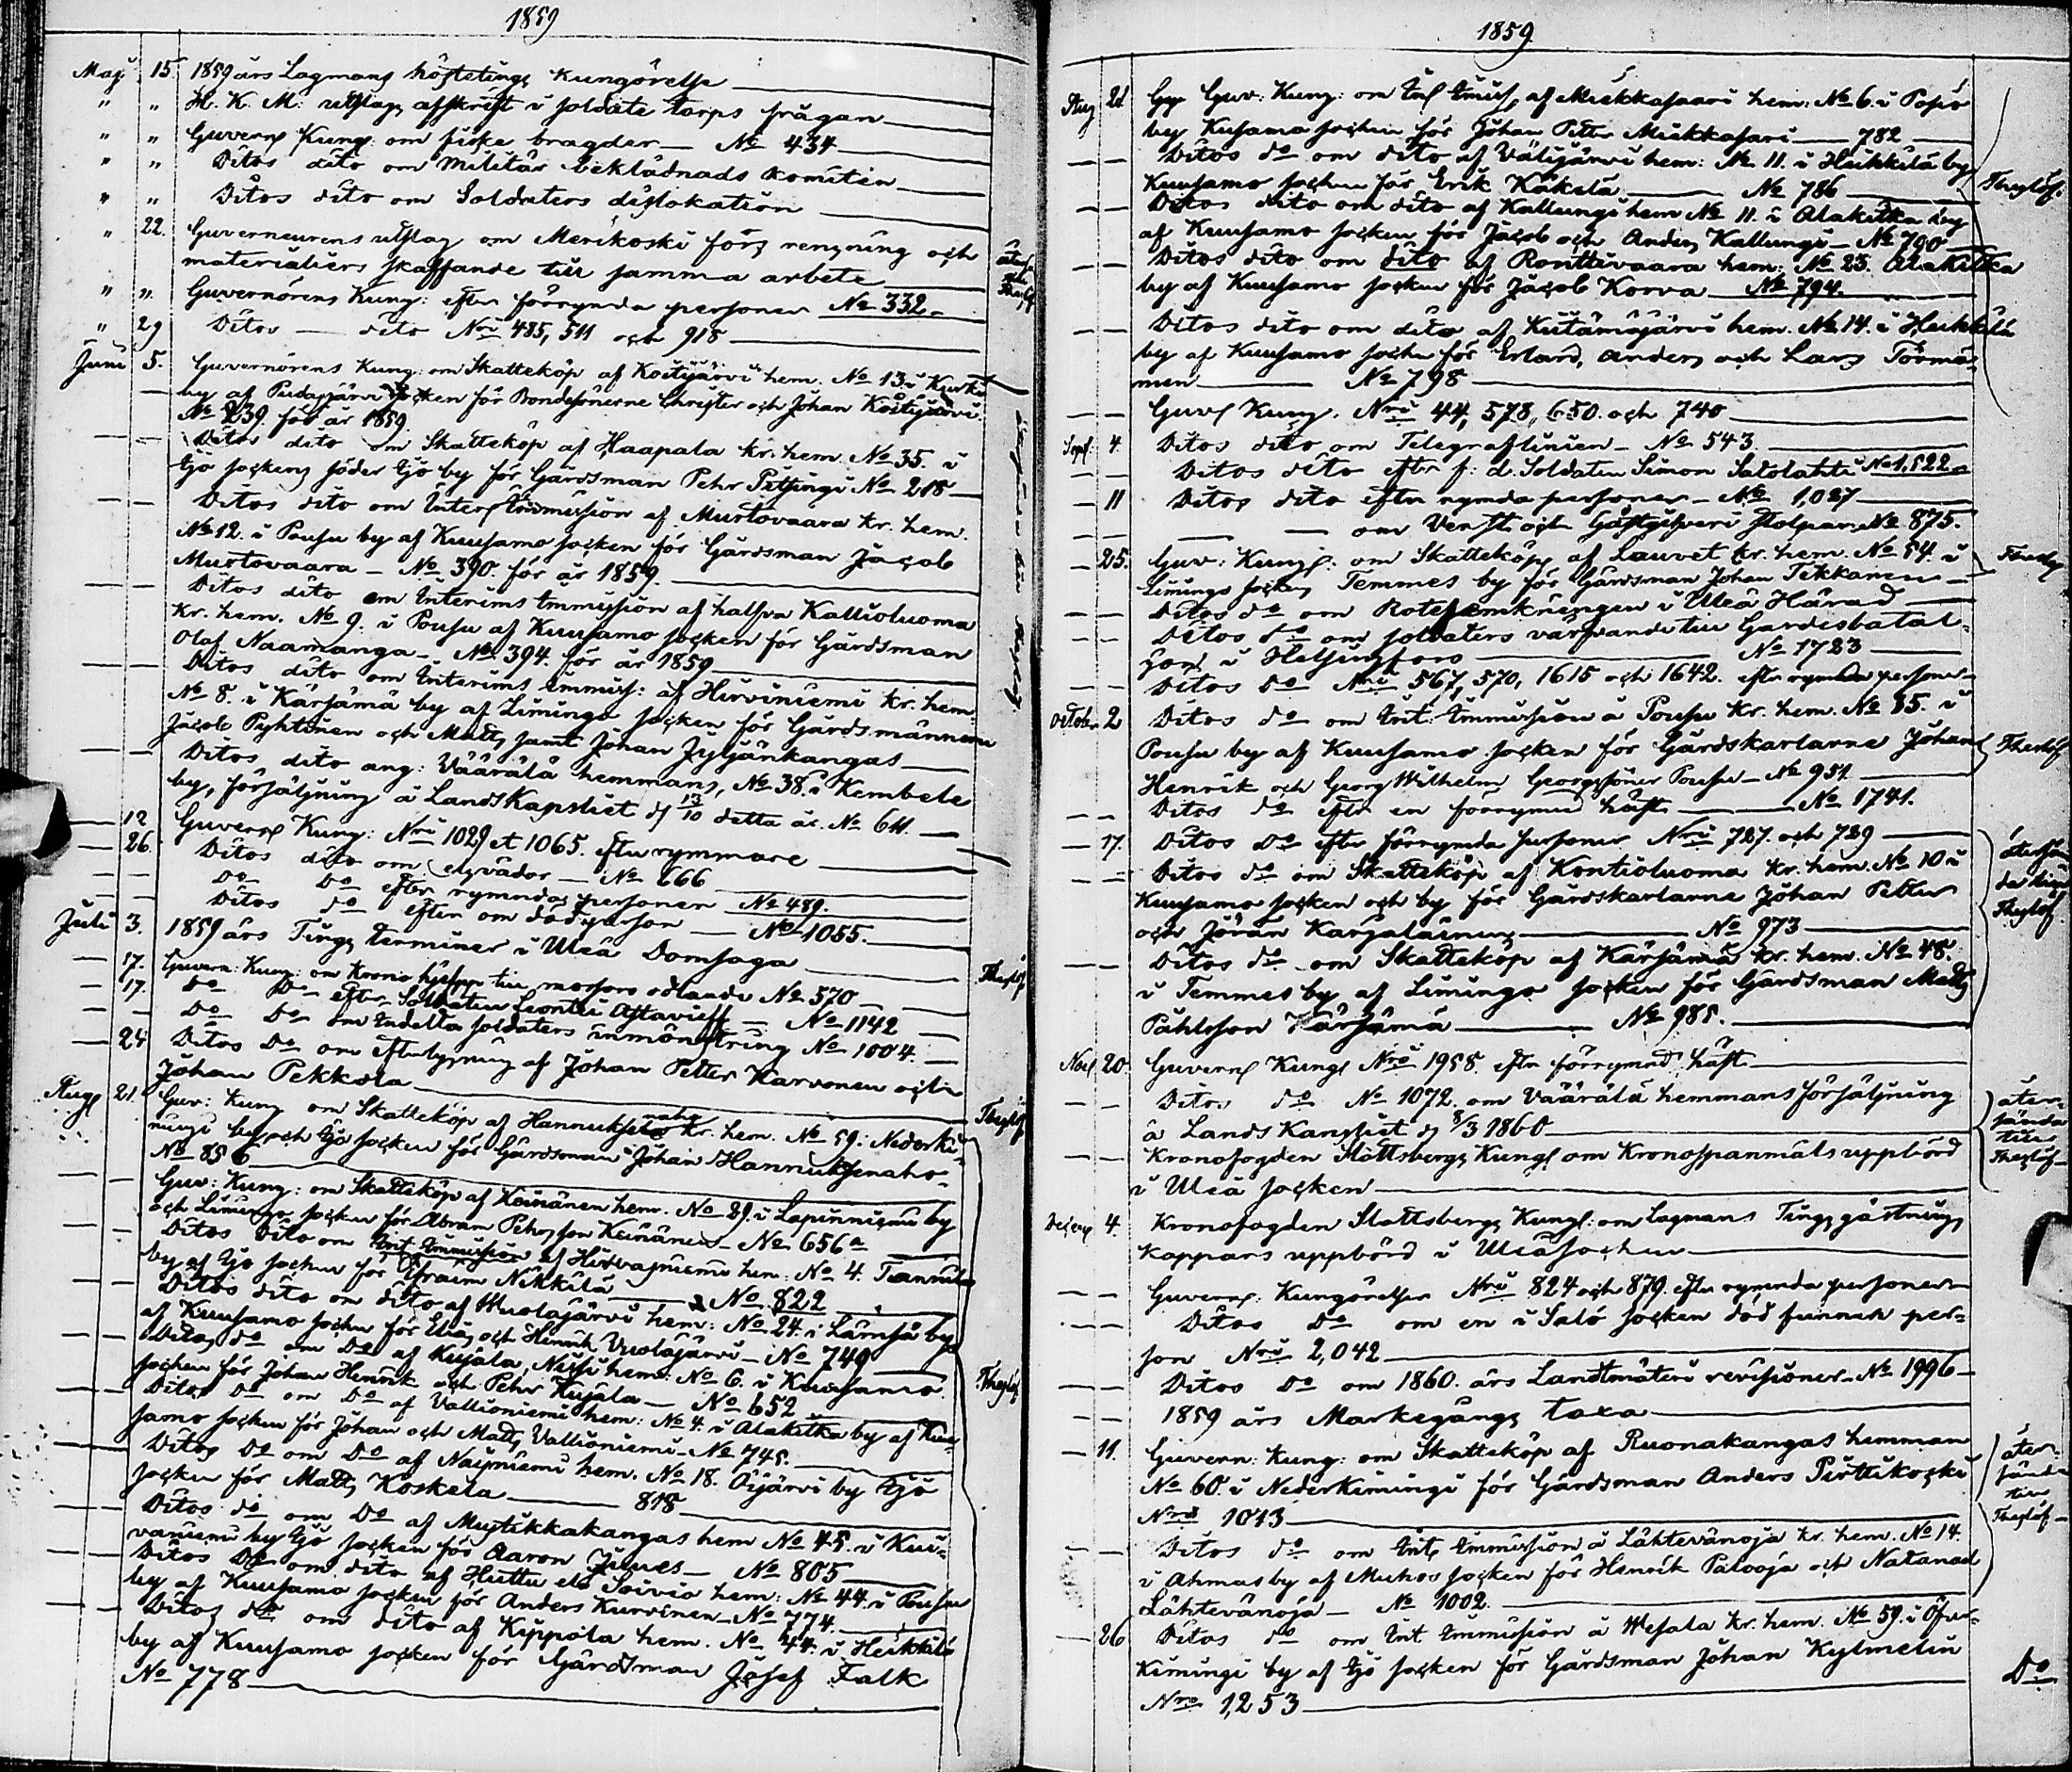 1859
Maj 15 1859 års Lagmans höstetings Kungörelse
" " H. K. M: utslags afskrift i soldate torps frågan
" " Guverns Kung: om fiske bragder — No 434
" " Ditos dito om Militär beklädnads komitén
" " Ditos dito om Soldaters dislokation
" 22. Guverneurens utslag om Merikoski fors rensning och
materialiers skaffande till samma arbete
" " Guvernörens Kung: efter förrymda personer No 332
" 29 Ditos — dito Nris 485, 511 och 918
Juni 5. Guvernörens Kung: om Skatteköp af Koitijärvi hem. No 13 i Kurki
by af Pudasjärvi Socken för Bondesönerne Christer och Johan Koitijärvi
No 239. för år 1859.
Ditos dito om Skatteköp af Haapala kr. hem. No 35. i
Ijo sockens söder Ijo by för Gårdsman Pehr Pitsingi No 218
Ditos dito om Interims Immission af Murtovaara kr. hem.
No 12. i Pousu by af Kuusamo socken för Gårdsman Jacob
Murtovaara — No 390. för år 1859.
Ditos dito om Interims Immission af halfva Kallioluoma
Kr. hem. No 9. i Pousu af Kuusamo socken för Gårdsman
Olof Naamanga — No 394. för år 1859
Ditos dito om Interims Immiss: af Hirviniemi kr. hem.
No 8. i Kärsämä by af Limingo socken för Gårdsmännerne
Jacob Pyhtinen och Matts samt Johan Jyljänkangas
Ditos dito ang: Väärälä hemmans, No 38. i Kembele
by, försäljning å Landskansliet d 13/10 detta år. No 611.
12 Guverns Kung: Nris 1029 et 1065. efter rymmare
26. Ditos dito om elgvådor — No 666
Do Do efter rymnda personer No 489.
Ditos do efter om död person — No 1055.
Juli 3. 1859 års Tings terminer i Uleå Domsaga
17. Guvern: Kung: om Krono hjelpp till mossors odlande No 570
17. Do Do efter Soldaten Leontii Astavieff — No 1142
Do Do om Indelta soldaters inmönstring No 1004.
24 Ditos Do om efterlysning af Johan Petter Karvonen och
Johan Pekkola
Augs 21. Guv: Kung om Skatteköp af Hannuksenaho kr. hem. No 59: Nederki=
mingi by och Ijo socken för Gårdsman Johan Hannuksenaho
No 856
Guv: Kung: om Skatteköp af Keinänen hem. No 29. i Lapinniemi by
och Limingo socken för Abram Pehrsson Keinänen — No 656
Ditos Dito om Int Immission af Hietajniemi hem: No 4. Tannila
by af Ijo socken för Efraim Nikkilä — No 822
Ditos dito om dito af Vuolajärvi hem: No 24. i Lämsä by
af Kuusamo socken för Elias och Henrik Vuolajärvi — No 749
Ditos do om Do af Kujala, Nissi hem: No 6. i Kuusamo
socken för Johan Henrik och Pehr Kujala — No 652
Ditos Do om Do af Vallioniemi hem: No 4. i Alakitka by af Kuu=
samo socken för Johan och Matts Vallioniemi — No 745.
Ditos Do om Do af Naisniemi hem. No 18. Oijärvi by Ijo
socken för Matts Koskela — 818
Ditos do om Do af Mustikkakangas hem No 45. i Kui=
vaniemi by Ijo socken för Aaron Junes — No 805
Ditos Do om dito af Huttu el. Soivio hem: No 44. i Pousu
by af Kuusamo socken för Anders Kurvinen — No 774.
Ditos do om dito af Kippola hem. No 44. i Heikkilä
by af Kuusamo socken för Gårdsman Josef Falk
No 778
Theslöf
Theslöf
Theslöf
1859
Aug 21 Guv: Kung: om Int Immiss, af Mickkasaari hem: No 6. i Posio
by Kusamo socken för Johan Petter Mickkasari — 782
Ditos do om dito af Välijärvi hem: No 11. i Heikkilä by
Kuusamo socken för Erik Käkelä — No 786
Ditos dito om dito af Kallungi hem No 11. i Alakitka by
af Kuusamo socken för Jacob och Anders Kallungi — No 790
Ditos dito om dito af Ronttivaara hem: No 25. Alakitka
by af Kuusamo socken för Jacob Korva — No 794.
Ditos dito om dito af Kiitämäjärvi hem. No 14. i Heikkilä
by af Kuusamo socken för Erland, Anders och Lars Törmä=
nen — No 798
Guvs Kung. Nris 44, 578, 650. och 740
Sept. 4 Ditos dito om Telegraflinien — No 543
Ditos dito efter f: d. Soldaten Simon Salolahti No 1,522
11 Ditos dito efter rymda personer — No 1,027
— om Verst och Gästgifveri stolpar No 875.
25. Guv: Kungs: om Skatteköp af Lauvet kr. hem. No 54. i
Limingo socken Temmes by för Gårdsman Johan Tikkanen
Ditos do om Rotesamkningen i Uleå Härad
Ditos do om soldaters värfvande till Gardesbatal=
jon i Helsingfors — No 1723
Ditos Do Nris 567, 570, 1615 och 1642. efter rymda personer
October 2 Ditos do om Int. Immission å Pousu Kr. hem. No 85. i
Pousu by af Kuusamo socken för Gårdskarlarne Johan
Henrik och Georg Wilhelm Georgssöner Pousu — No 951
Ditos do efter en förrymd häst — No 1741.
17. Ditos Do efter förrymda personer Nris 727. och 729
Ditos do om Skatteköp af Kontioluoma kr. hem. No 10 i
Kuusamo socken och by för Gårdskarlarne Johan Petter
och Jöran Karjalainens — No 973
Ditos do om Skatteköp af Kärsämä kr. hem. No 48.
i Temmes by af Limingo socken för Gårdsman Matts
Påhlsson Kärsämä — No 985.
Nov 20. Guverns Kungs Nris 1958. efter förrymd häst
Ditos do No 1072. om Väärälä hemmans försäljning
å Lands Kansliet d 8/3 1860
Kronofogden Slottsbergs Kungs om Kronospanmåls uppbörd
i Uleå socken
Decemr 4. Kronofogden Slottsbergs Kungs: om Lagmans Tings gästnings
kappars uppbörd i Uleå socken
Guverns: Kungörelse Nris 824 och 879. efter rymnda personer
Ditos Do om en i Salo socken död funnen per=
son Nris 2,042
Ditos Do om 1860. års Landtmäteri revisioner — No 1996
1859 års Markegångs taxa
11. Guvern: Kung: om Skatteköp af Ruonakangas hemman
No 60. i Nederkimingi för Gårdsman Anders Pirttikoski
Nro 1013
Ditos do om Int Immission å Lähtevänoja kr. hem. No 14.
i Ahmas by af Muhos socken för Henrik Palooja och Natanael
Lähtevänoja — No 1002.
26 Ditos do om Int Immission å Wesala kr. hem. No 59. i Öfver=
Kimingi by af Ijo socken för Gårdsman Johan Kylmelin
Nro 1,253
Theslöf
Theslöf
Theslöf
återsän
da till
Theslöf
åter
sända
till
Theslöf
åter
sända
till
Theslöf
Do